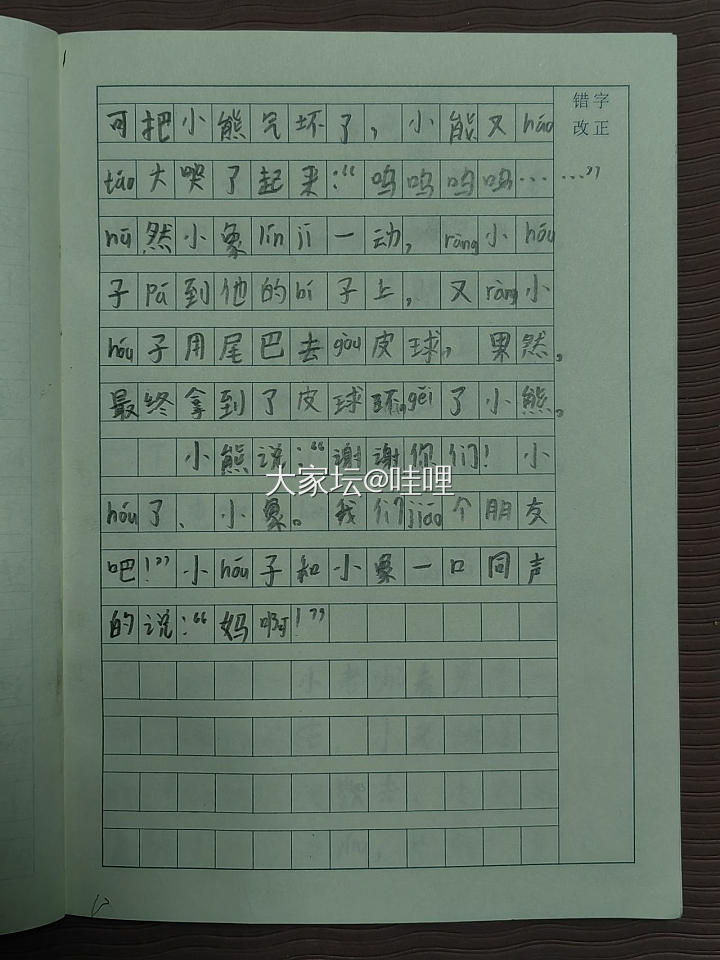 错字
改正
可把小熊气坏了，小熊又háo
táo大哭了起来：“呜呜呜呜……”
hū然小象lín jī一动，ràng小hóu
子pá到他的bí子上，又ràng小
hóu子用尾巴去gòu皮球，果然。
最终拿到了皮球环gěi了小熊。
小熊说：“谢谢你们！小
大家坛@哇哩
hóu了、小象。我们jiāo个朋友
吧！”小hóu子和小象一口同声
的说：“妈啊！”